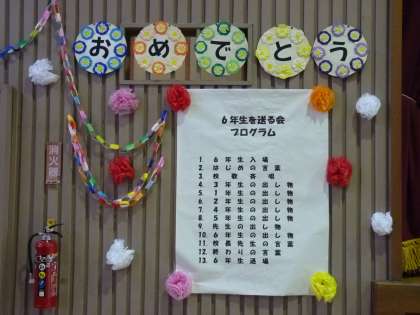 おめでとう
6年生を送る会
プログラム
1. 6年生入場
2. はじめの言葉
3. 校歌斉唱
4. 3年生の出し物
5. 1年生の出し物
6. 2年生の出し物
7. 4年生の出し物
8. 5年生の出し物
9. 先生の出し物
10. 6年生の出し物
11. 校長先生の言葉
12. 終わりの言葉
13. 6年生退場
消火器